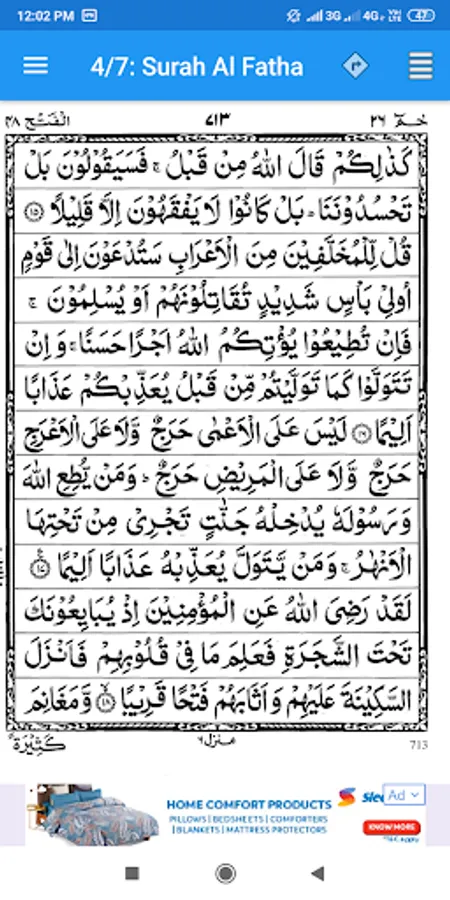 12:02 PM 3G 4G+ VoLTE 47
4/7: Surah Al Fatha
الْفَتْح ٤٨ ٧١٣ حٰمٓ ٢٦
كَذٰلِكُمْ قَالَ اللّٰهُ مِنْ قَبْلُ ۚ فَسَيَقُوْلُوْنَ بَلْ
تَحْسُدُوْنَنَا ؕ بَلْ كَانُوْا لَا يَفْقَهُوْنَ اِلَّا قَلِيْلًا ۝١٥
قُلْ لِّلْمُخَلَّفِيْنَ مِنَ الْاَعْرَابِ سَتُدْعَوْنَ اِلٰى قَوْمٍ
اُولِيْ بَاْسٍ شَدِيْدٍ تُقَاتِلُوْنَهُمْ اَوْ يُسْلِمُوْنَ ۚ
فَاِنْ تُطِيْعُوْا يُؤْتِكُمُ اللّٰهُ اَجْرًا حَسَنًا ۚ وَاِنْ
تَتَوَلَّوْا كَمَا تَوَلَّيْتُمْ مِّنْ قَبْلُ يُعَذِّبْكُمْ عَذَابًا
اَلِيْمًا ۝١٦ لَيْسَ عَلَى الْاَعْمٰى حَرَجٌ وَّلَا عَلَى الْاَعْرَجِ
حَرَجٌ وَّلَا عَلَى الْمَرِيْضِ حَرَجٌ ؕ وَمَنْ يُّطِعِ اللّٰهَ
وَرَسُوْلَهٗ يُدْخِلْهُ جَنّٰتٍ تَجْرِيْ مِنْ تَحْتِهَا
الْاَنْهٰرُ ۚ وَمَنْ يَّتَوَلَّ يُعَذِّبْهُ عَذَابًا اَلِيْمًا ۝١٧
لَقَدْ رَضِيَ اللّٰهُ عَنِ الْمُؤْمِنِيْنَ اِذْ يُبَايِعُوْنَكَ
تَحْتَ الشَّجَرَةِ فَعَلِمَ مَا فِيْ قُلُوْبِهِمْ فَاَنْزَلَ
السَّكِيْنَةَ عَلَيْهِمْ وَاَثَابَهُمْ فَتْحًا قَرِيْبًا ۝١٨ وَّمَغَانِمَ
كَثِيْرَةً منزل ٦ 713
HOME COMFORT PRODUCTS
PILLOWS | BEDSHEETS | COMFORTERS
| BLANKETS | MATTRESS PROTECTORS
Ad
KNOW MORE
*T&C Apply